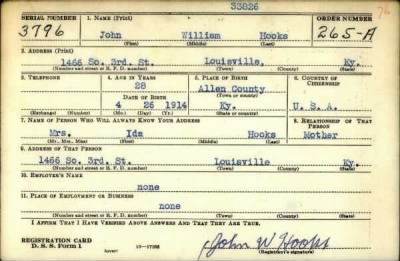 33826
76
SERIAL NUMBER 1. NAME (Print) ORDER NUMBER
3796 John William Hooks 265-A
(First) (Middle) (Last)
2. ADDRESS (Print)
1466 So. 3rd. St. Louisville, Ky.
(Number and street or R. F. D. number) (Town) (County) (State)
3. TELEPHONE 4. AGE IN YEARS 5. PLACE OF BIRTH 6. COUNTRY OF CITIZENSHIP
28 Allen County
DATE OF BIRTH (Town or county)
4 26 1914 Ky. U. S. A.
(Exchange) (Number) (Mo.) (Day) (Yr.) (State or country)
7. NAME OF PERSON WHO WILL ALWAYS KNOW YOUR ADDRESS 8. RELATIONSHIP OF THAT PERSON
Mrs. Ida Hooks Mother
(Mr., Mrs., Miss) (First) (Middle) (Last)
9. ADDRESS OF THAT PERSON
1466 So. 3rd. St. Louisville Ky.
(Number and street or R. F. D. number) (Town) (County) (State)
10. EMPLOYER'S NAME
none
11. PLACE OF EMPLOYMENT OR BUSINESS
none
(Number and street or R. F. D. number) (Town) (County) (State)
I AFFIRM THAT I HAVE VERIFIED ABOVE ANSWERS AND THAT THEY ARE TRUE.
REGISTRATION CARD
D. S. S. Form 1 (over) 16—17105 John W Hooks
(Registrant's signature)